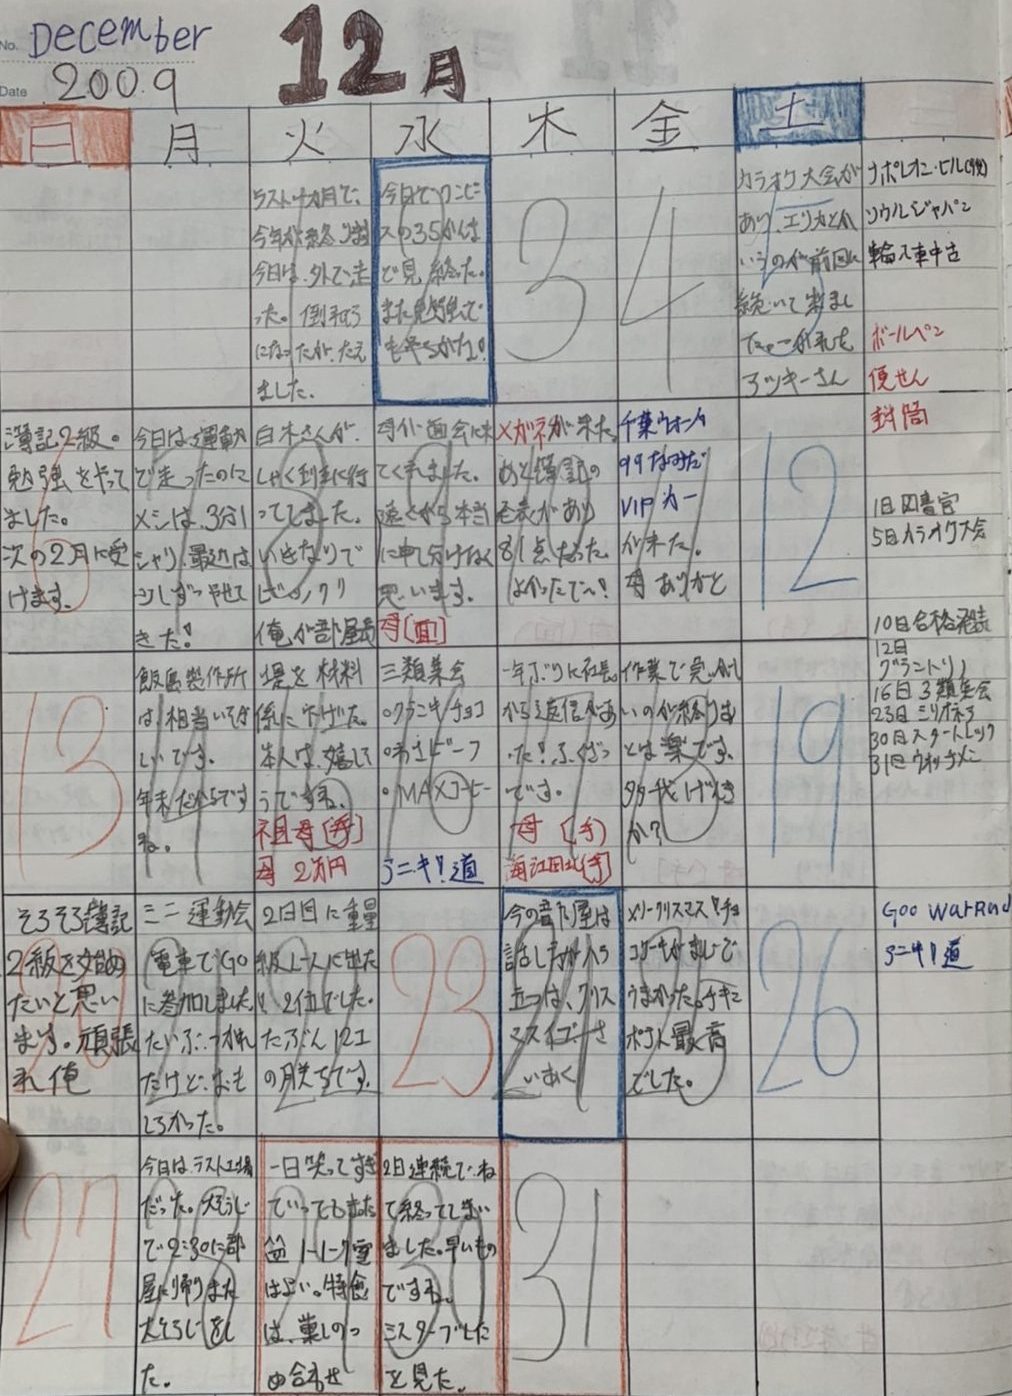 No. December
Date 2009
12月
日 月 火 水 木 金 土
ラストヶ月で、
今年が終ります
今日は、外で走
った。倒れそう
になったが、たえ
ました。
今日でワンピー
スの35かんま
で見終った。
また
3
4
5
カラオケ大会が
あり、エリカとか
いうのが前回に
続いて来まし
た。
アッキーさん
ナポレオン・ヒル
ソウルジャパン
輸入車中古
ボールペン
便せん
封筒
6
簿記2級。
勉強をやって
ました。
次の2月に受
けます。
7
今日は運動
で走ったのに
メシは、3分1
シャリ、最近は
少しずつやせて
きた!
8
白木さんが、
しゃく利主に行
ってしまった。
いきなりで
ビックリ
俺が部屋長
9
母が面会に来
てくれました。
遠くから本当
に申し分けなく
思います。
母(面)
メガネが来た。
あと簿記の
発表があり
81点だった。
よかったでー!
千葉ウォーカ
99なみだ
VIPカー
が来た。
母ありがと
12
1日図書官
5日カラオケ大会
10日合格発表
12日
グラントリノ
16日3類集会
23日ミリオネラ
30日スタートレック
31日ウォッチメン
13
飯島製作所
は相当いそが
しいです。
年末だからです
ね。
堤を材料
係に下げた。
本人は、嬉しそ
うですね。
祖母(手)
母 2万円
三類集会
○クランキーチョコ
○MAXコーヒー
アニキ!道
一年ぶりに社長
から返信があ
った!ふくざつ
です。
母(手)
作業で
いのが終りま
とは楽です。
か?
19
そろそろ簿記
2級を始め
たいと思い
ます。頑張
れ俺
ミニ運動会
電車でGO
に参加しました。
だいぶつかれ
だけど、おも
しろかった。
2日目に重量
級レースに出た
2位でした。
たぶん12工
の勝ちです。
23
今の音た屋は
話し方が入う
五つは、クリス
マスイブーさ
いあく
メリークリスマス!チョ
コケーキがまじで
うまかった。チキン
ポテト最高
でした。
26
Goo Warrand
アニキ!道
27
今日は、ラスト工場
だった。大そうじ
で2:30に部
屋に帰りまた
大そうじをし
た。
一日笑ってすぎ
ていってもまた
はよい。特食
は、菓しのつ
め合わせ
2日連続で、ね
て終ってしまい
ました。早いもの
ですね。
を見た。
31